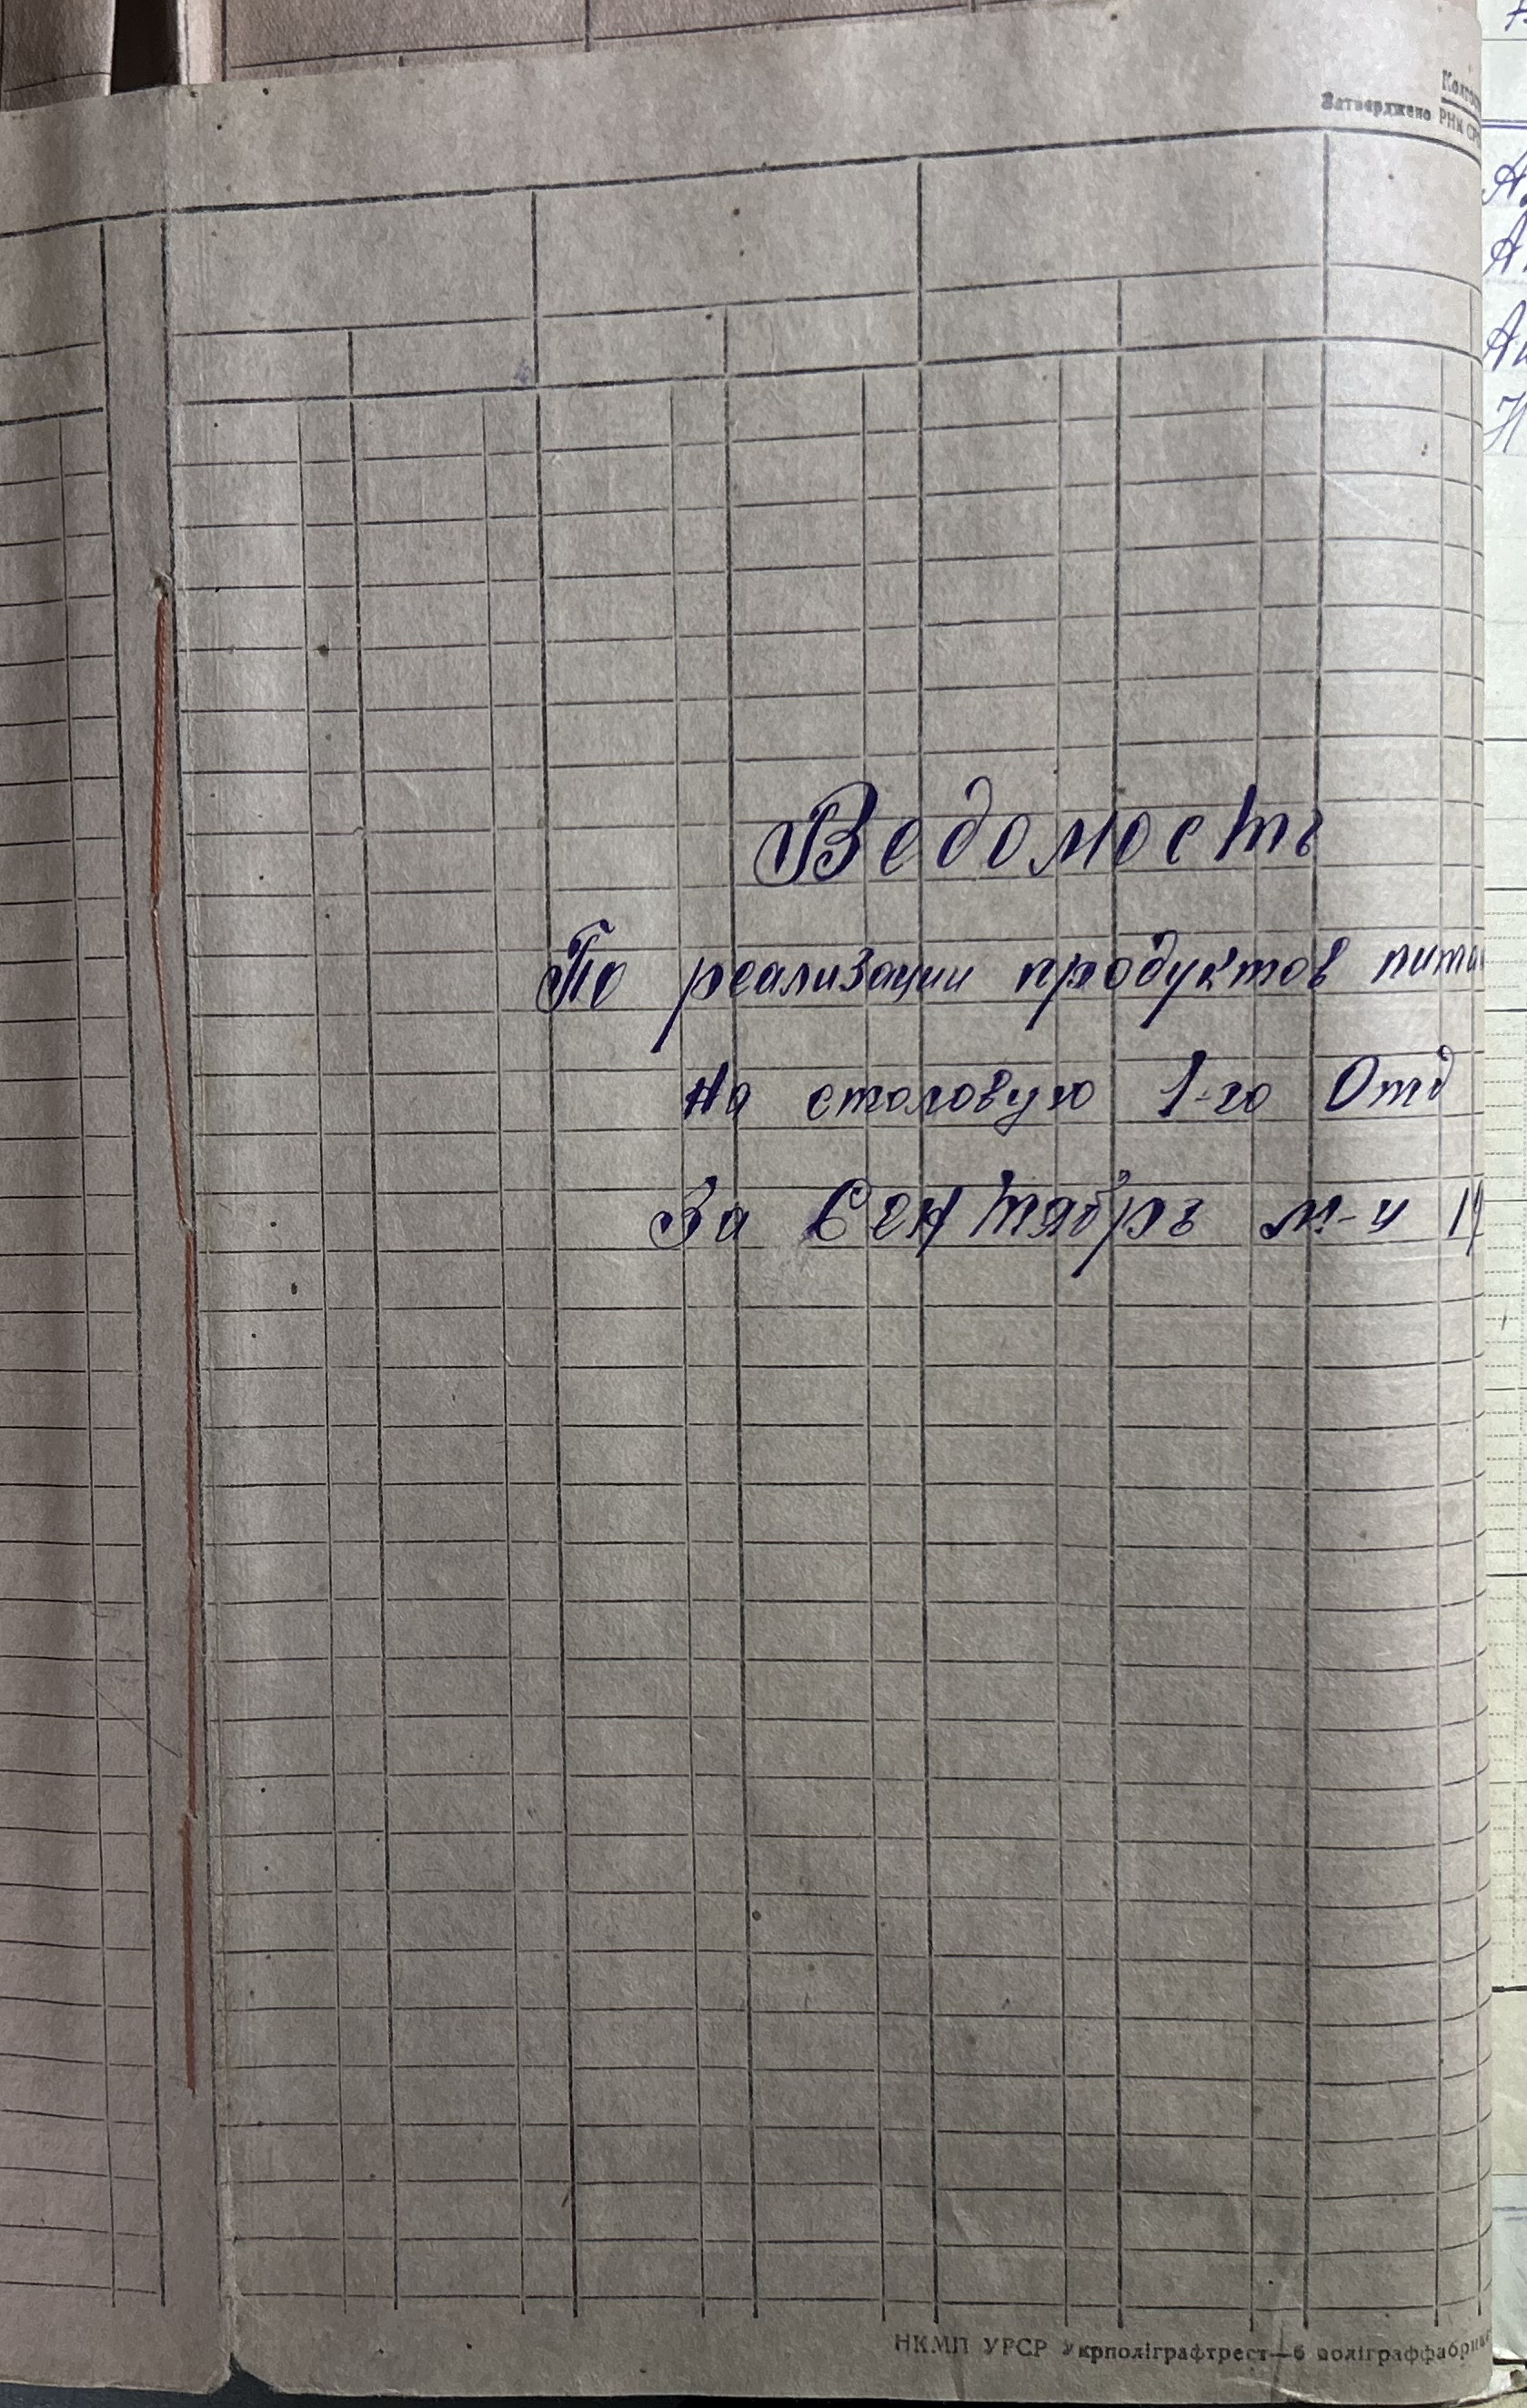 Затверджено РНК
Ведомость
По реализации продуктов
На столовую 1-го Отд
За Сентябрь м-ц
НКМП УРСР Укрполіграфтрест—6 поліграффабрика